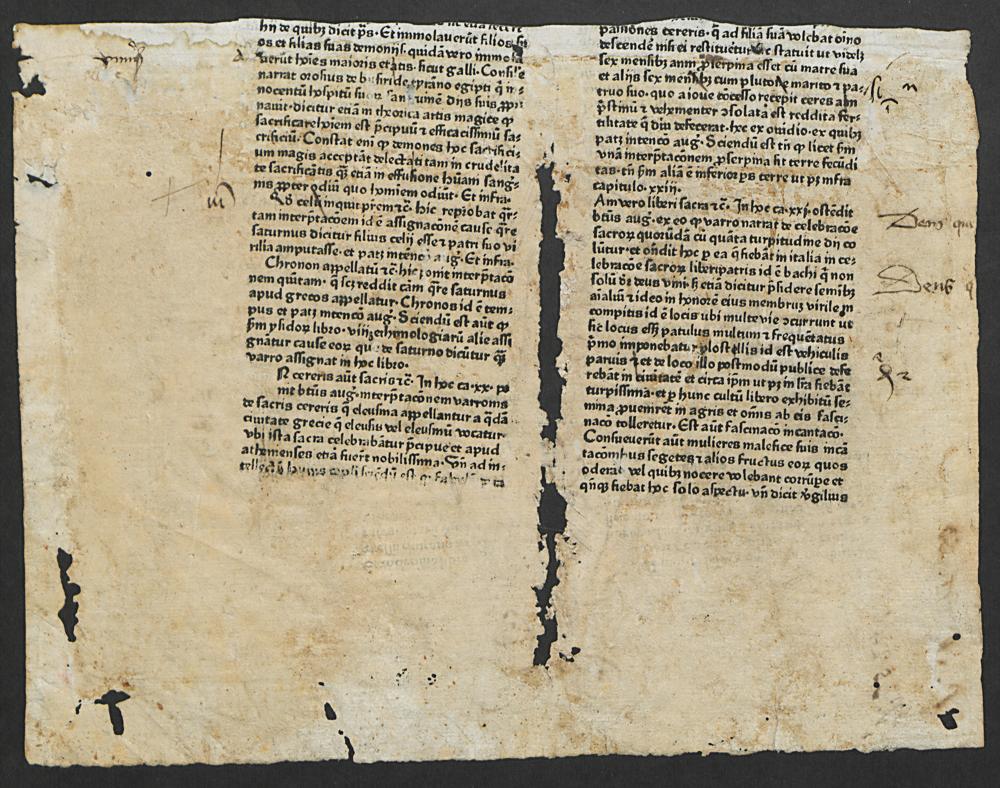 hij de quibꝫ dicit p̃s · Et immolauerũt filios su
os et filias suas demonijs · quidã vero immola
uerũt hoies maioris etatis · sicut galli · Consile
narrat orosius de busiride tyrãno egipti q̃ in
nocentũ hospitũ
nauit · dicitur etiã in theorica artis magice ꝙ
sacrificare hoiem est p̃cipuũ ⁊ efficacissimũ sa-
crificiũ · Constat eni ꝙ demones hoc sacrifici-
um magis acceptãt delectati tam in crudelita
te sacrificãtis q̃ȝ etiã in effusione hũani sang-
nis ꝓpter odiũ quo hominem odiũt · Et infra ·
hic reprobat q̃r-
tam interp̃tacoem id ẽ assignacõnẽ cause q̃re
saturnus dicitur filius celij esse ⁊ patri suo vi
rilia amputasse · et patꝫ intenc̃o aug̃ · Et infra ·
Chronon appellatũ ⁊c̃ · hic ponit interp̃tacõ
nem quĩtam · q̃ scꝫ reddit cãm q̃re saturnus
apud grecos appellatur · Chronos id ẽ tem-
pus et patꝫ intencõ aug̃ · Sciendũ est aũt ꝙ
p̃m ysidoꝝ libro · viij · ethimologiarũ alie assi
gnãtur cause eoꝝ que de saturno dicũtur q̃ȝ
varro assignat in hoc libro ·
N cereris aũt sacris ⁊c̃ · In hoc ca · xx · po
nit btũs aug̃ · interp̃taconem varronis
de sacris cereris q̃ eleusina appellantur a q̃dã
ciuitate grecie q̃ eleusis vel eleusinũ vocatur ·
vbi ista sacra celebrabãtur p̃cipue et apud
athenienses etiã fuer̃t nobilissima · Vñ ad in-
passiones cereris · q̃ ad filiã suã volebat oĩno
descendẽ nisi ei restitueret̃ statuit ut videlꝫ
sex mensibꝫ anni ꝓserpina esset cũ matre sua
et alijs sex mensibꝫ cum plutone marito ⁊ pa-
truo suo · quo a ioue cõcesso recepit ceres aĩm
p̃stinũ ⁊ vehementer ɔsolata est reddita fer-
tilitate q̃ diu defecerat · hec ex ouidio · ex quibꝫ
patꝫ intencõ aug̃ · Sciendũ est tñ ꝙ licet p̃m
vnã interp̃tacõnem ꝓserpina sit terre fecũdi
tas · tñ p̃m aliã ẽ inferior ps̃ terre ut pꝫ infra
capitulo · xxiiij ·
Am vero liberi sacra ⁊c̃ · In hoc ca · xxj · ostẽdit
btũs aug̃ · ex eo ꝙ varro narrat de celebracõe
sacroꝝ quorũdã cũ quãta turpitudine dij co
lũtur · et oñdit hoc ꝑ ea q̃ fiebãt in italia in ce-
lebracõe sacroꝝ liberi patris id ẽ bachi q̃ non
solũ d̃r deus vini · sꝫ etiã dicitur p̃sidere semĩbꝫ
aĩaliũ ⁊ ideo in honorẽ eius membrũ virile in
compitis id ẽ locis ubi multe vie ɔcurrunt ut
sic̃ locus esset patulus multum ⁊ frequẽtatus
p̃mo imponebatur plostellis id est vehiculis
paruis ⁊ et de loco illo postmodũ publice defe
rebãt in ciuitatẽ et circa ip̃m ut pꝫ in lr̃a fiebãt
turpissima · et ꝑ hunc cultũ libero exhibitũ se-
mina ꝓuenirẽt in agris et omis ab eis fasci-
nacõ tolleretur · Est aũt fascinacõ incantacõ ·
Consueuerũt aũt mulieres malefice suis incã
tacõnibus segetes ⁊ alios fructus eoꝝ quos
oderãt vel quibꝫ nocere volebant corrũpe et
q̃nqꝫ fiebat hoc solo aspectu · vñ dicit v̾giliuis
Deus qui
Deus q